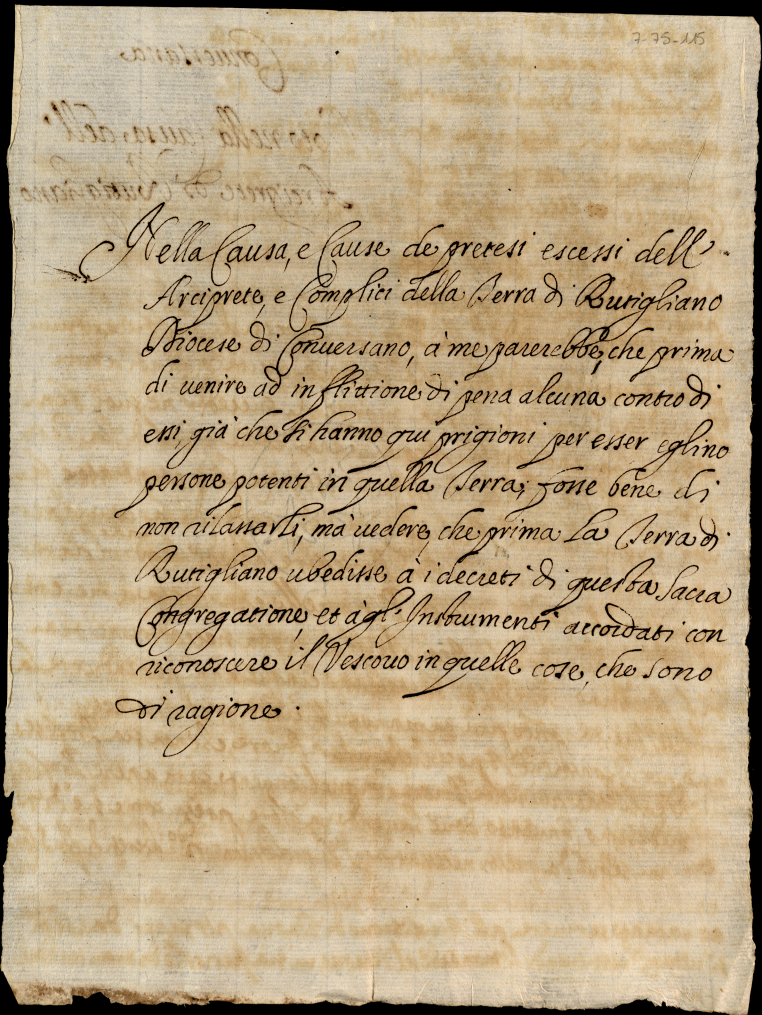 7-75-115
Nella Causa, e Cause de pretesi escessi dell'
Arciprete, e Complici della Terra di Rutigliano
Diocese di Conversano, à me parerebbe, che prima
di venire ad inflittione di pena alcuna contro di
essi, già che si hanno qui prigioni per esser eglino
persone potenti in quella Terra; fosse bene di
non rilassarli, mà vedere, che prima la Terra di
Rutigliano ubedisse à i decreti di questa Sacra
Congregatione, et àgl' Instrumenti accordati con
riconoscere il Vescovo in quelle cose, che sono
di ragione.